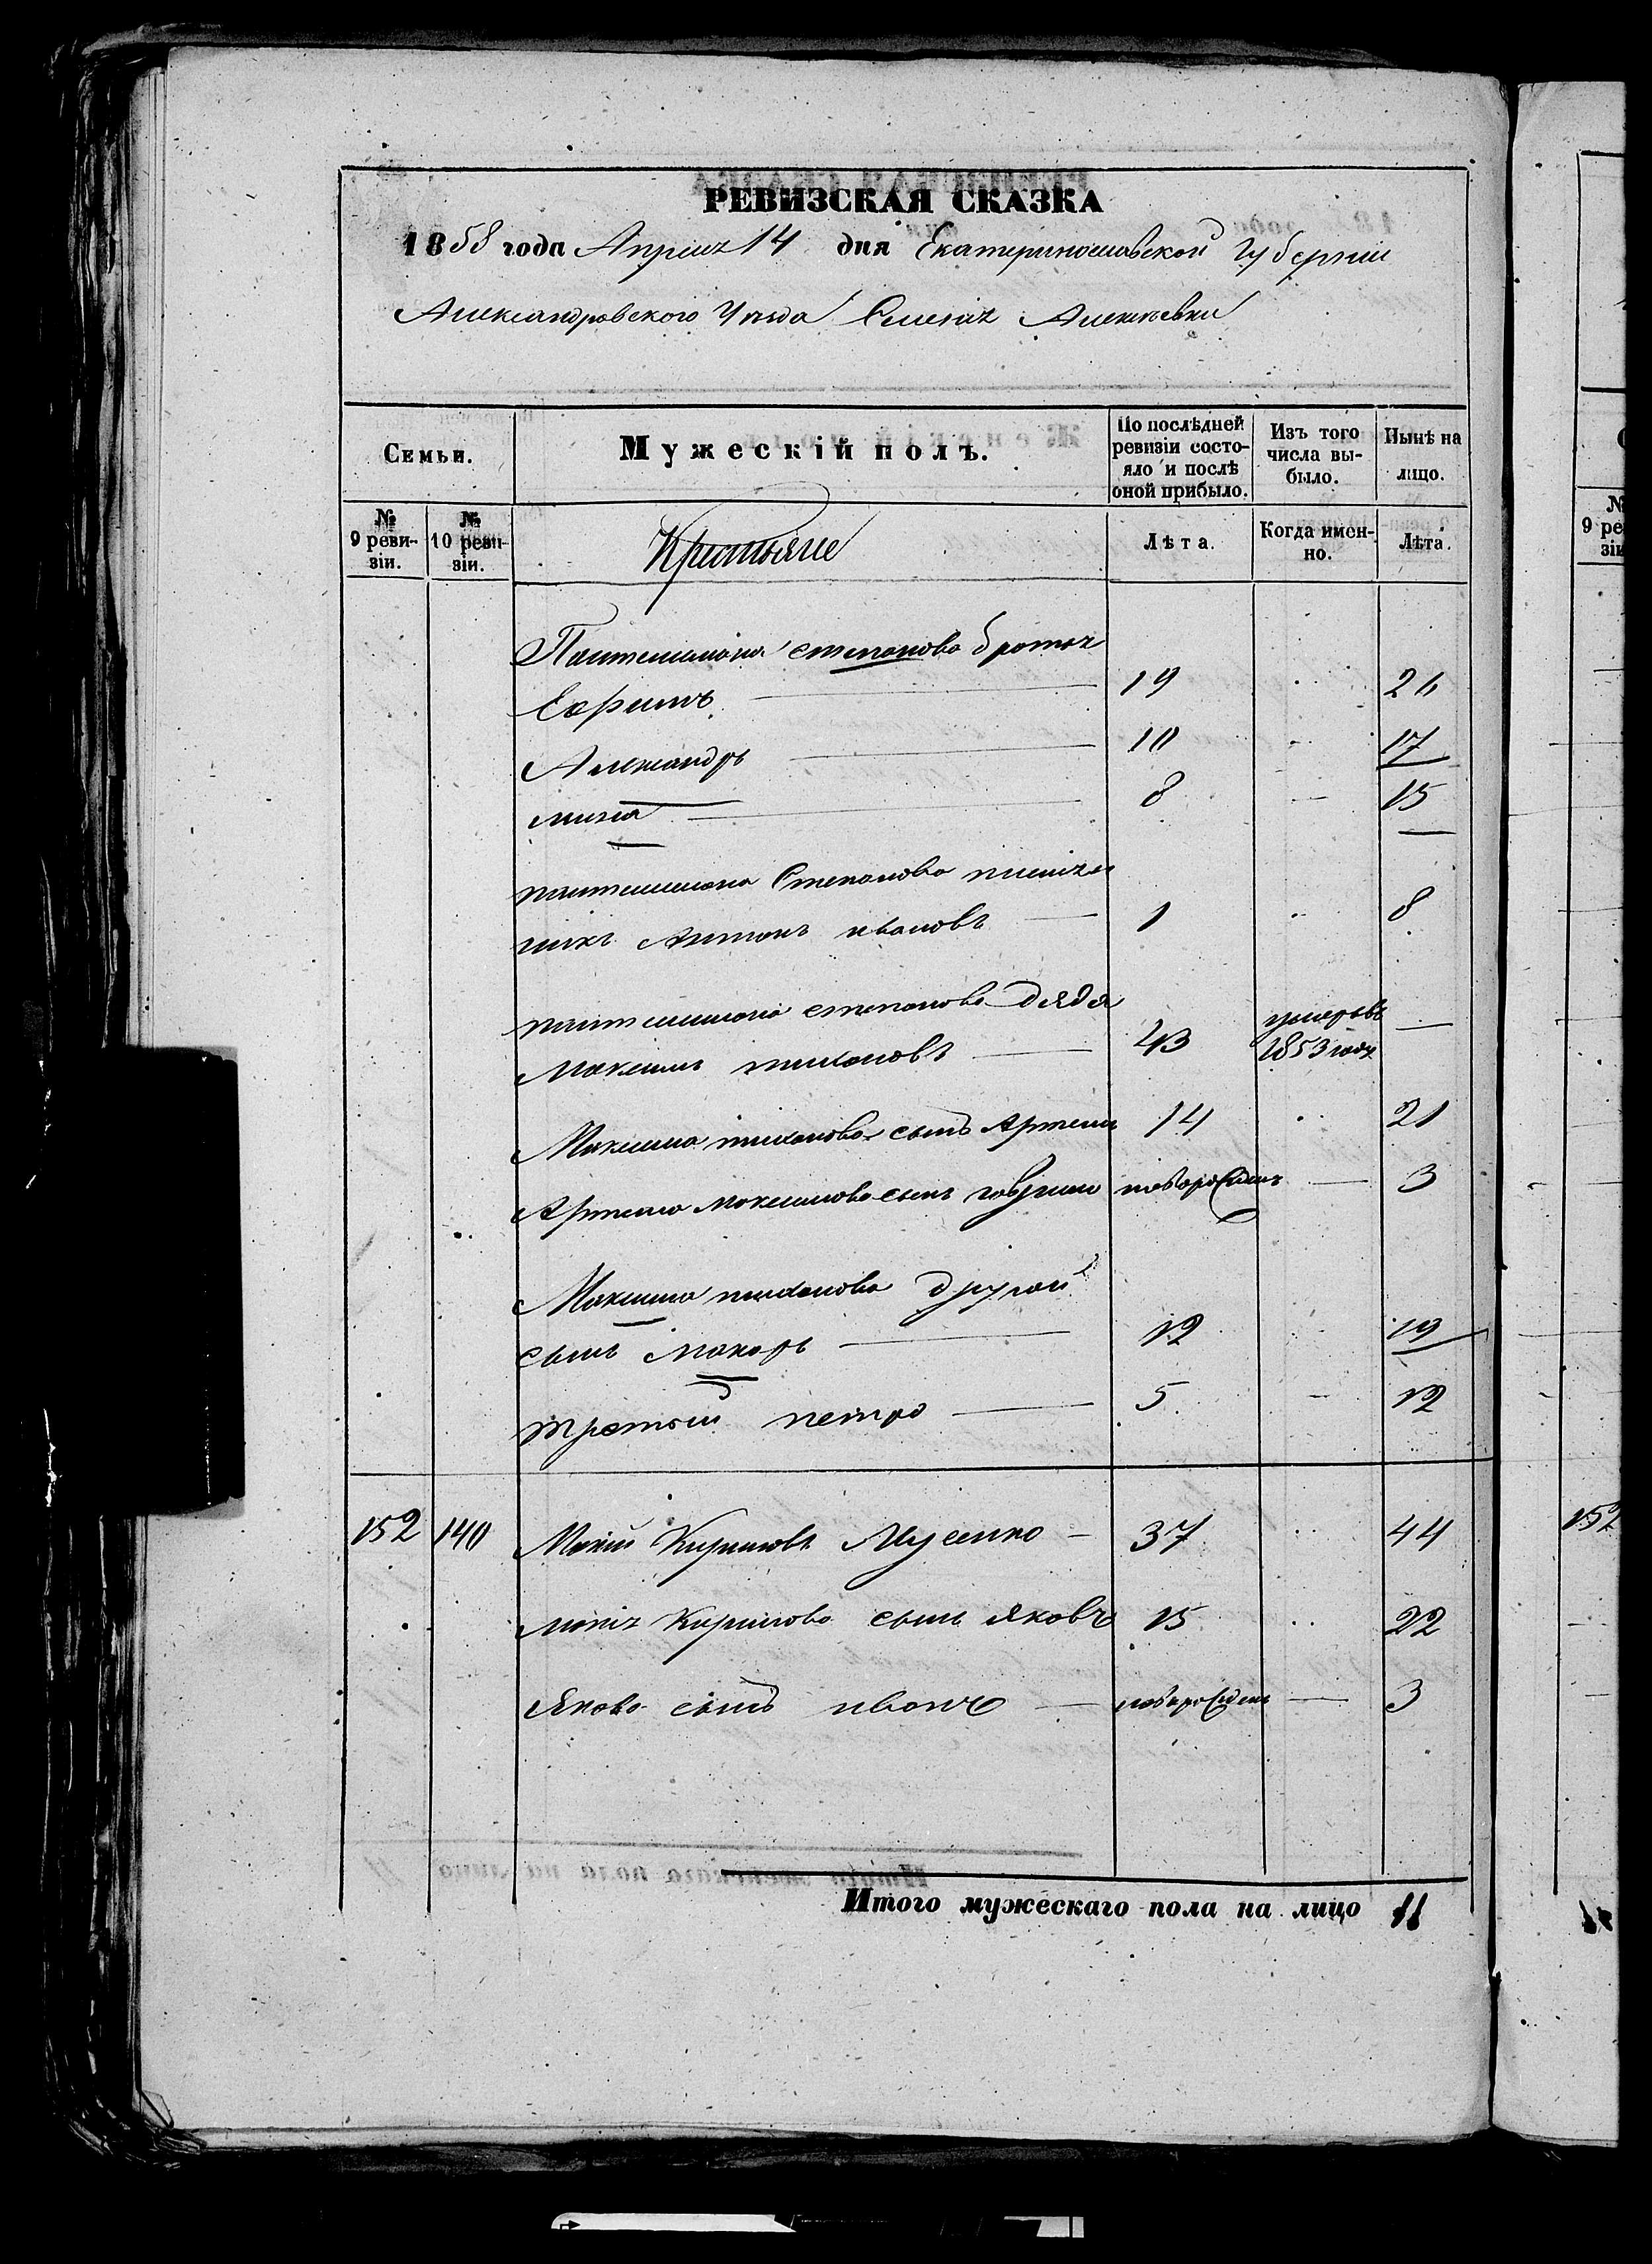 РЕВИЗСКАЯ СКАЗКА
1858 года Апреля 14 дня Екатеринославской Губернии
Александровского Уезда Селенія Алексѣевки
Семьи.
Мужескій полъ.
По послѣдней ревизіи состо-
яло и послѣ оной прибыло.
Изъ того числа вы-
было.
Нынѣ на лицо.
№ 9 реви-
зіи.
№ 10 реви-
зіи.
Крестьяне
Лѣта.
Когда имен-
но.
Лѣта.
Пантелимона степанова братья
Ефримъ 19 26
Александръ 10 17
мина 8 15
пантелимона Степанова племян
никъ Антонъ ивановъ 1 8
пантелимона степанова дядя
Максимъ тихановъ 43 умеръ въ 1853 году —
Максима тиханова сынъ Артемъ 14 21
Артема максимова сынъ гаврило новорожден — 3
Максима тиханова другой
сынъ макаръ 12 19
третий петро 5 12
152 140 Мокий Кириловъ Мусенко 37 44
мокия Кирилова сынъ яковъ 15 22
якова сынъ иванъ новорожден — 3
Итого мужескаго пола на лицо 11
№ 9 ре
зі
152